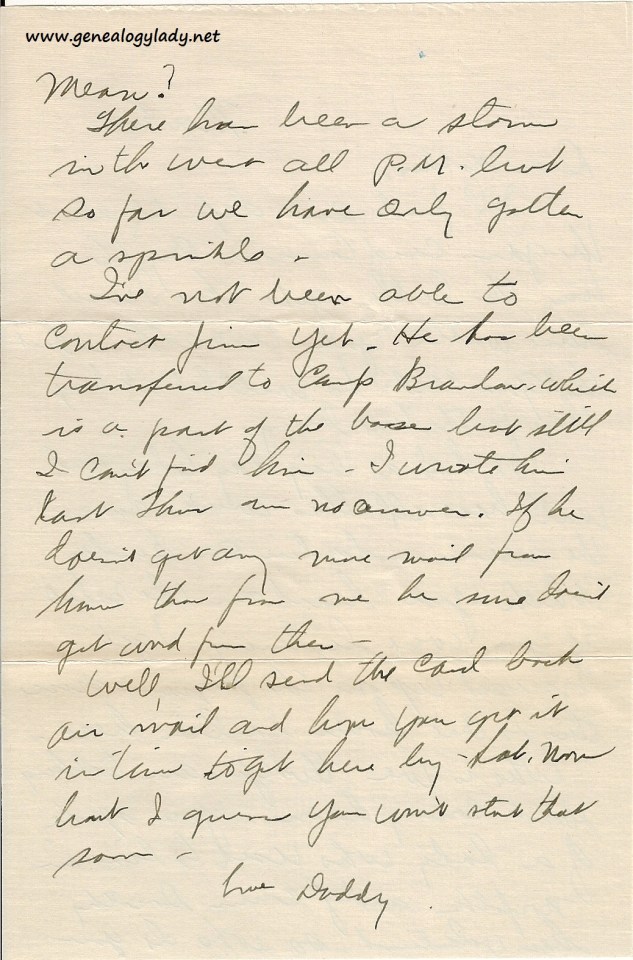 www.genealogylady.net
Mean?
There has been a storm
in the west all P.M. but
so far we have only gotten
a sprinkle.
I've not been able to
contact Jim yet. He has been
transferred to Camp which
is a part of the base but still
I can't find him - I wrote him
last Thur no answer. If he
doesn't get any more mail from
home than from me he sure doesn't
get word from there -
Well, I'll send the card back
air mail and hope you get it
in time to get here by Sat. noon
but I guess you won't start that
soon -
Love Daddy